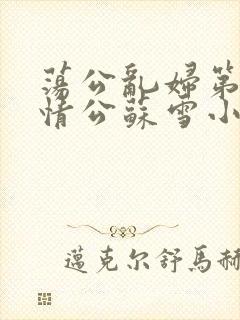 蕩公亂婦第
情公蘇雪小
邁克尔舒馬赫